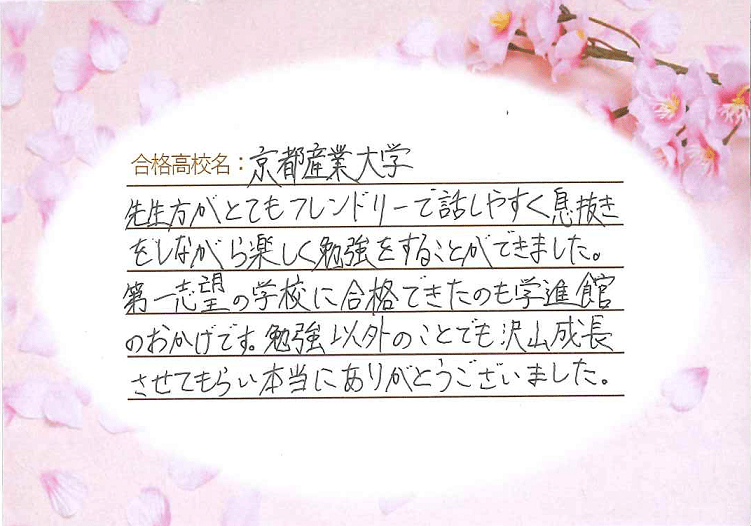 合格高校名：京都産業大学
先生方がとてもフレンドリーで話しやすく息抜き
をしながら楽しく勉強をすることができました。
第一志望の学校に合格できたのも学進館
のおかげです。勉強以外のことでも沢山成長
させてもらい本当にありがとうございました。